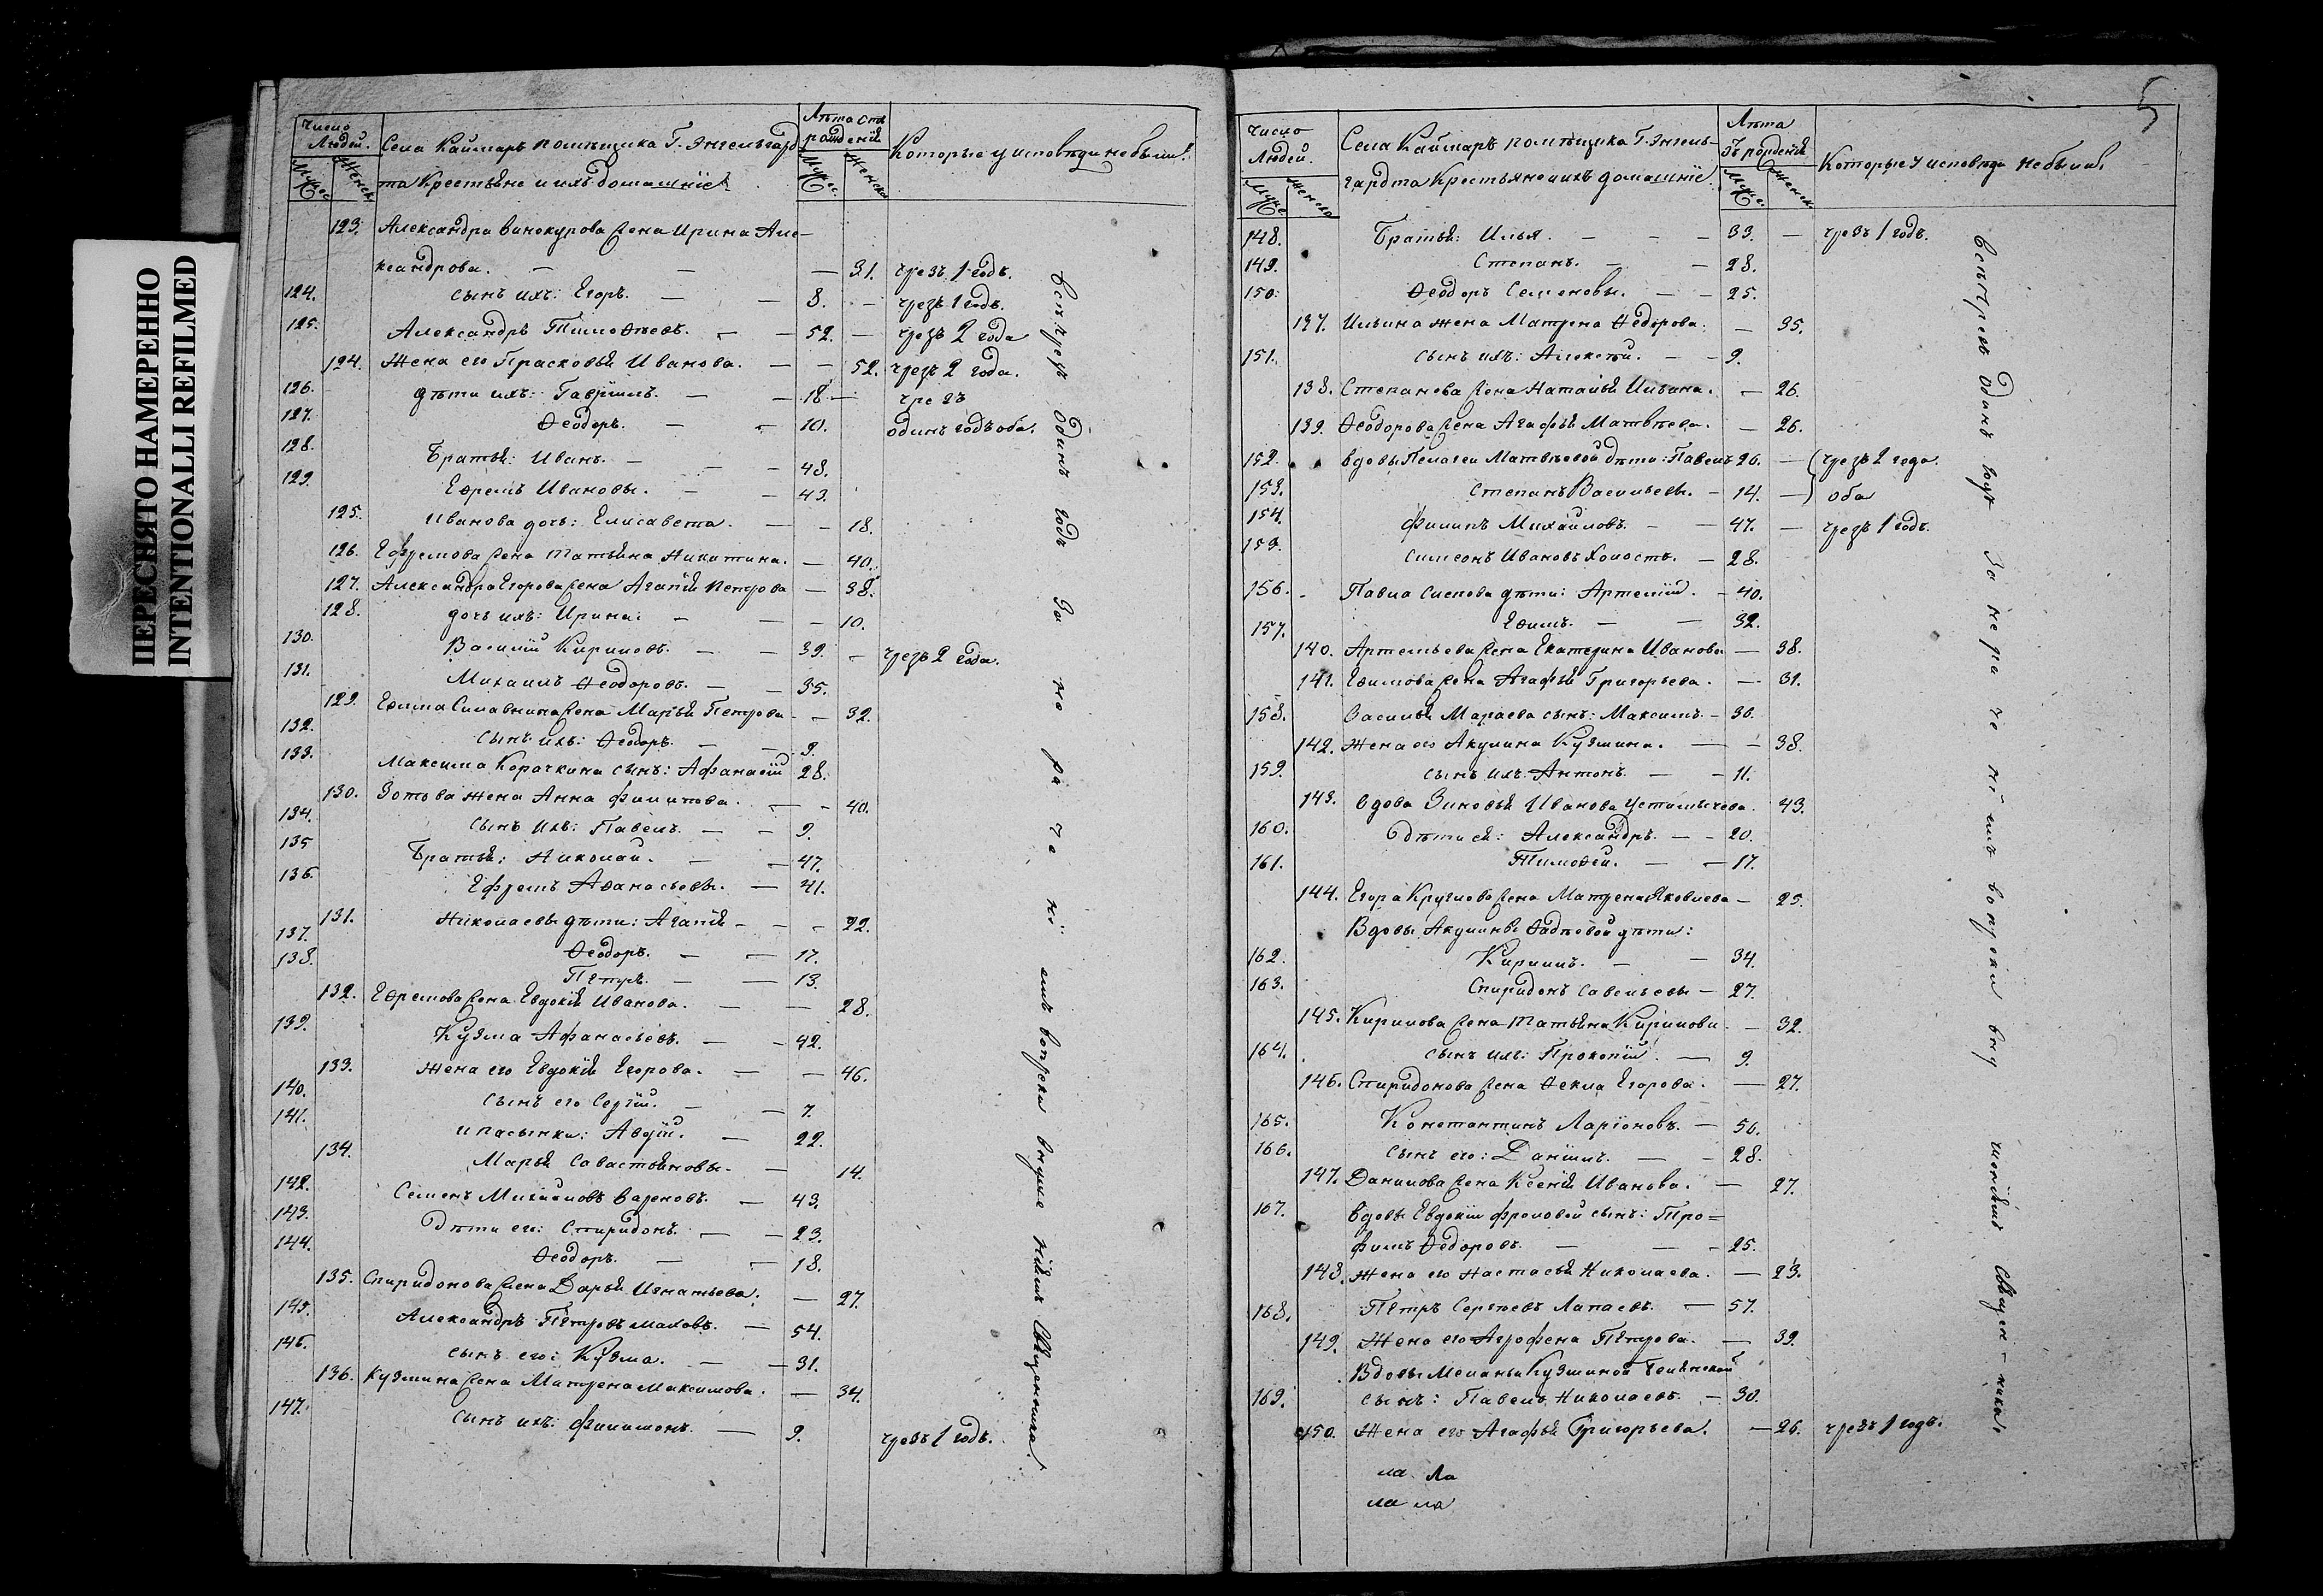 ПЕРЕСНЯТО НАМЕРЕННО
INTENTIONALLI REFILMED
Число Людей.
Мужс. Женск.
Села Каймаръ помѣщика Г. Энгельгард
та Крестьяне и ихъ домашніе
Лѣта отъ рожденія
Мужс. Женск.
Которые у исповѣди небыли.
123. Александра Винокурова жена Ирина Але-
ксандрова. — — — 31. чрезъ 1 годъ.
124. сынъ ихъ: Егоръ. — — 8. — чрезъ 1 годъ.
125. Александръ Тимоѳеевъ. — — 52. — чрезъ 2 года
124. Жена его Прасковья Иванова. — — 52. чрезъ 2 года.
126. дѣти ихъ: Гавріилъ. — — 18 — чрезъ
127. Ѳеодоръ. — — 10. одинъ годъ оба.
128. Братья: Иванъ. — — — 48.
129. Еѳремъ Ивановы. — — 43.
125. Иванова дочь: Елисавета. — — 18.
126. Ефремова жена Татьяна Никитина. — 40.
127. Александра Егорова жена Агапія Петрова — 38.
128. дочь ихъ: Ирина. — — — 10.
130. Василій Кириловъ. — — 39. — чрезъ 2 года.
131. Михаилъ Ѳеодоровъ. — — 35.
129. Еѳима жена Марья Петрова — — 32.
132. сынъ ихъ: Ѳеодоръ. — — 9.
133. Максима Корачкина сынъ: Афанасій 28.
130. Зотова жена Анна Филипова. — — 40.
134. сынъ ихъ: Павелъ. — — 9.
135 Братья: Николай. — — 47.
136. Ефремъ Аѳанасьевы. — 41.
131. Николаевы дѣти: Агапія — — — 22.
137. Ѳеодоръ. — — 17.
138. Петръ. — — 13.
132. Еѳремова жена Евдокія Иванова. — — 28.
139. Кузма Афанасьевъ. — — 42.
133. Жена его Евдокія Егорова. — — 46.
140. сынъ его Сергій. — — 7.
141. и пасынки: Авдій. — 22.
134. Марья Савастьяновы. — 14.
142. Семенъ Михайловъ Вареновъ. — 43.
143. Дѣти его: Спиридонъ. — — 23.
144. Ѳеодоръ. — — 18.
135. Спиридонова жена Дарья Игнатьева. — 27.
145. Александръ Петровъ Маховъ. — 54.
146. сынъ его: Кузма. — — 31.
136. Кузмина жена Матрена Максимова. — 34.
147. сынъ ихъ: Филимонъ. — 9. чрезъ 1 годъ.
одинъ годъ За нера че ні емъ вопреки
5
Число Людей.
Мужс Женска
Села Каймаръ помѣщика Г. Энгель-
гардта Крестьяне и ихъ домашніе
Лѣта
Ъ рожденія
Мужс. Женск.
Которые у исповѣди небыли.
148. Братья: Илья. — — — 33. — чрезъ 1 годъ.
149. Степанъ. — — 28.
150. Ѳеодоръ Семеновы. — — 25.
137. Ильина жена Матрена Ѳедорова. — 35.
151. сынъ ихъ: Алексѣй. — — 9.
138. Степанова жена Наталья Ильина. — 26.
139. Ѳеодорова жена Агафья Матвѣева. — 26.
152. вдовы Пелагеи Матвѣевой дѣти: Павелъ 26. — чрезъ 2 года.
153. Степанъ Васильевы. — 14. — оба
154. Филипъ Михайловъ. — — 47. — чрезъ 1 годъ.
155. Симеонъ Ивановъ Холостъ. — 28.
156. Павла дѣти: Артемій. — 40.
157. Еѳимъ. — — 32.
140. Артемьева жена Екатерина Иванова — 38.
141. Еѳимова жена Агафья Григорьева. — 31.
158. Василья Мараева сынъ: Максимъ. — 30.
142. Жена его Акулина Кузмина. — — 38.
159. сынъ ихъ: Антонъ. — — 11.
143. Вдова Зиновья Иванова 43.
160. дѣти ея: Александръ. — — 20.
161. Тимоѳей. — — 17.
144. Егора Круглова жена Матрена Яковлева — 25.
Вдовы Акулины Ѳадѣевой дѣти:
162. Кирилъ. — — 34.
163. Спиридонъ Савельевы — 27.
145. Кирилова жена Татьяна Кирилова. — 32.
164. сынъ ихъ: Прокопій. — 9.
146. Спиридонова жена Ѳекла Егорова. — 27.
165. Константинъ Ларіоновъ. — 56.
166. сынъ его: Даніилъ. — — 28.
147. Данилова жена Ксенія Иванова. — 27.
167. вдовы Евдокіи Фроловой сынъ: Тро=
фимъ Ѳедоровъ. — — — 25.
148. Жена его Настасья Николаева. — 23.
168. Петръ Сергѣевъ Лапаевъ. — 57.
149. Жена его Агрофена Петрова. — 39.
Вдовы Меланьи Кузминой
169. сынъ: Павелъ Николаевъ. — 30.
150. Жена его Агафья Григорьева. — 26. чрезъ 1 годъ.
ла ла
ла ла
одинъ годъ За нера че ні емъ вопреки Священ-ника.